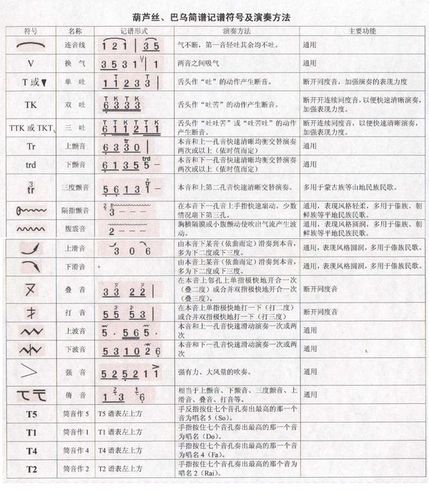 葫芦丝、巴乌简谱记谱符号及演奏方法
符号 名称 记谱形式 演奏方法 主要功能
连音线 1 2 1 | 3 5 气不断,第一音轻吐其余均不吐。 通用
V 换气 两音之间吸气 通用
T或▼ 单吐 舌头作“吐”的动作产生断音。 断开同度音,加强演奏的表现力度
TK 双吐 舌头作“吐苦”的动作产生断音。 断开开连续同度音,以便快速清晰演奏,
加强表现力度。
TTK 或 TKT 三吐 舌头作“吐吐苦”或“吐苦吐”的动作
产生断音。 断开连续同度音,以便快速清晰演奏,
加强表现力度。
Tr 上颤音 6 3 2 0 | 本音和上一孔音快速清晰均衡交替演奏
两次或以上(依时值而定) 通用
trd 下颤音 6 1 3 5 5 本音和下一孔音快速清晰均衡交替演奏
两次或以上(依时值而定) 通用
tr 三度颤音 5 6 1 3 1 本音和上第二孔音快速清晰交替演奏。 多用于蒙古族等山地民族民歌。
隔指颤音 2 - - - 在本音下一孔音上手指快速扇动,少数
情况扇下第三孔。 通用,表现风格轻柔,多用于傣族、朝
鲜族等平地民族民歌。
腹震音 2 - - - 胸横隔膜或小腹颤动使吹出气流产生波
动。 通用,表现风格圆润,多用于傣族、朝
鲜族等平地民族民歌。
上滑音 3 0 6 由本音下某音(依曲而定)滑奏到本音,
多为下二度或下三度。 通用,表现风格圆润,多用于傣族民歌。
下滑音 由本音上某音(依曲而定)滑奏到本音,
多为下二度或下三度。 通用,表现风格圆润,多用于傣族民歌。
叠音 3 3 2 2 | 在本音上包孔上单指极快地开合一次
(叠二度)或合并双指极快地开合一次
(叠三度)。 断开同度音
打音 5 5 5 3 | 在本音上单指极快地打一下(打二度)
或合并双指极快地打一下(打三度) 断开同度音
上波音 5 · 5 6 5 · 本音和上一孔音快速滑动演奏一次或两
次 通用
下波音 5 3 1 0 2 6 本音和下一孔音快速滑动演奏一次或两次 通用
> 强音 5 2 5 2 1 1 强有力、大风量的吹奏。 通用
倚音 1 3 6 相当于上颤音、下颤音、三度颤音、上
滑音、叠音、打音等。 通用
T5 筒音作 5 T5 谱表左上方 手反指按住七个音孔奏出最高的那一个
音为唱名 5(So)。
T1 筒音作 1 T1 谱表左上方 手指按住七个音孔奏出最高的那一个音
为唱名(Do)。
T4 筒音作 4 T4 谱表左上方 手指按住七个音孔奏出最高的那一个音
为唱名 4(Fa)。
T2 筒音作 2 T2 谱表左上方 手指按住七个音孔奏出最高的那一个音为
唱名 2(Rai)。